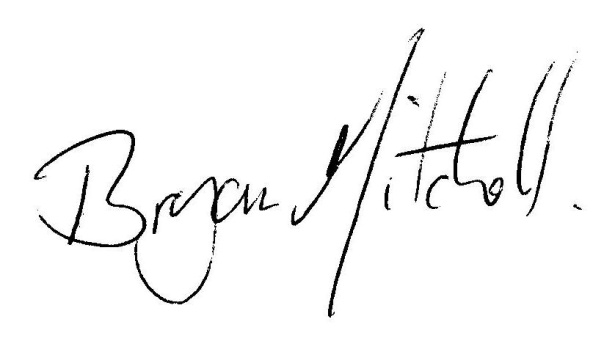 Bryan Mitchell.